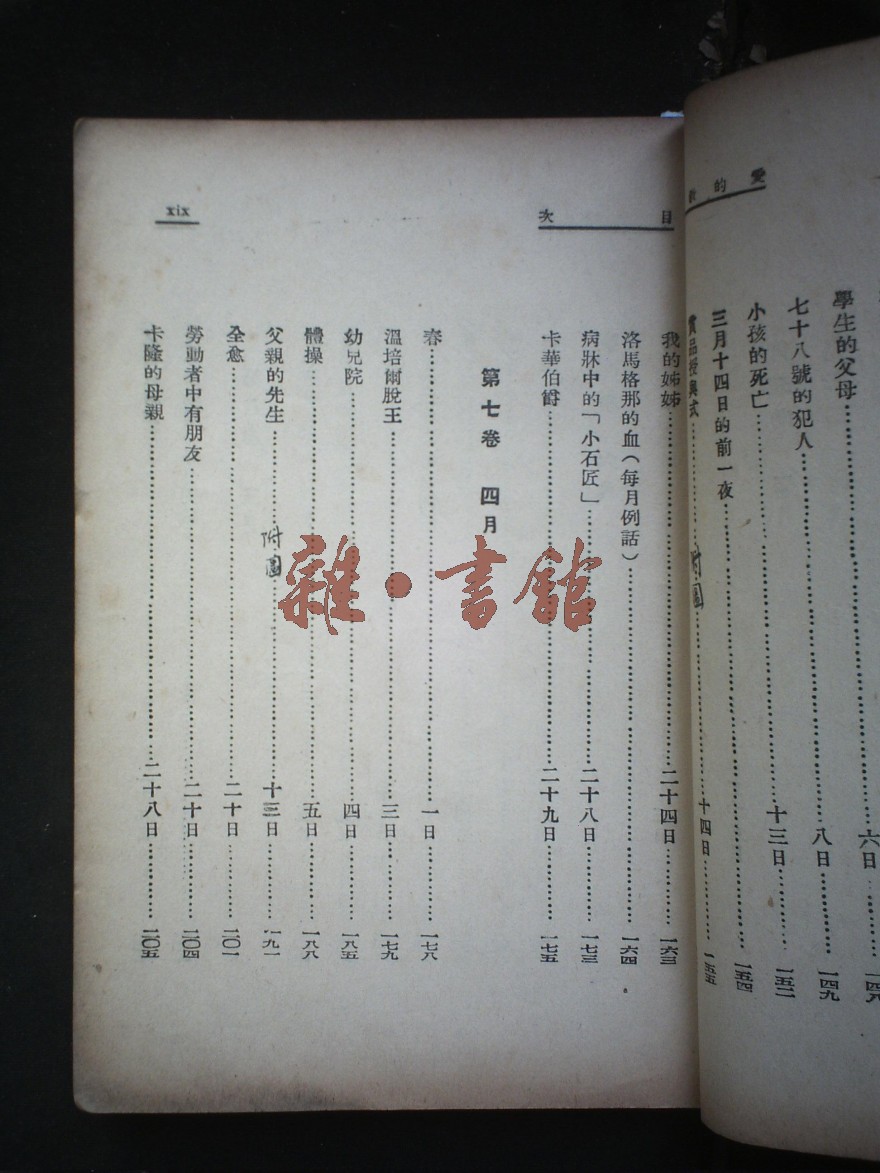 愛的
學生的父母……六日……一四八
七十八號的犯人……八日……一四九
小孩的死亡……十三日……一五二
三月十四日的前一夜……一五四
賞品授與式……附圖……十四日……一五五
目次
xix
我的姊姊……二十四日……一六三
洛馬格那的血(每月例話)……一六四
病牀中的「小石匠」……二十八日……一七三
卡華伯爵……二十九日……一七五
第七卷 四月
春……一日……一七八
溫培爾脫王……三日……一七九
幼兒院……四日……一八五
體操……五日……一八八
父親的先生……附圖……十三日……一九一
全愈……二十日……二〇一
勞動者中有朋友……二十日……二〇四
卡隆的母親……二十八日……二〇五
雜·書館